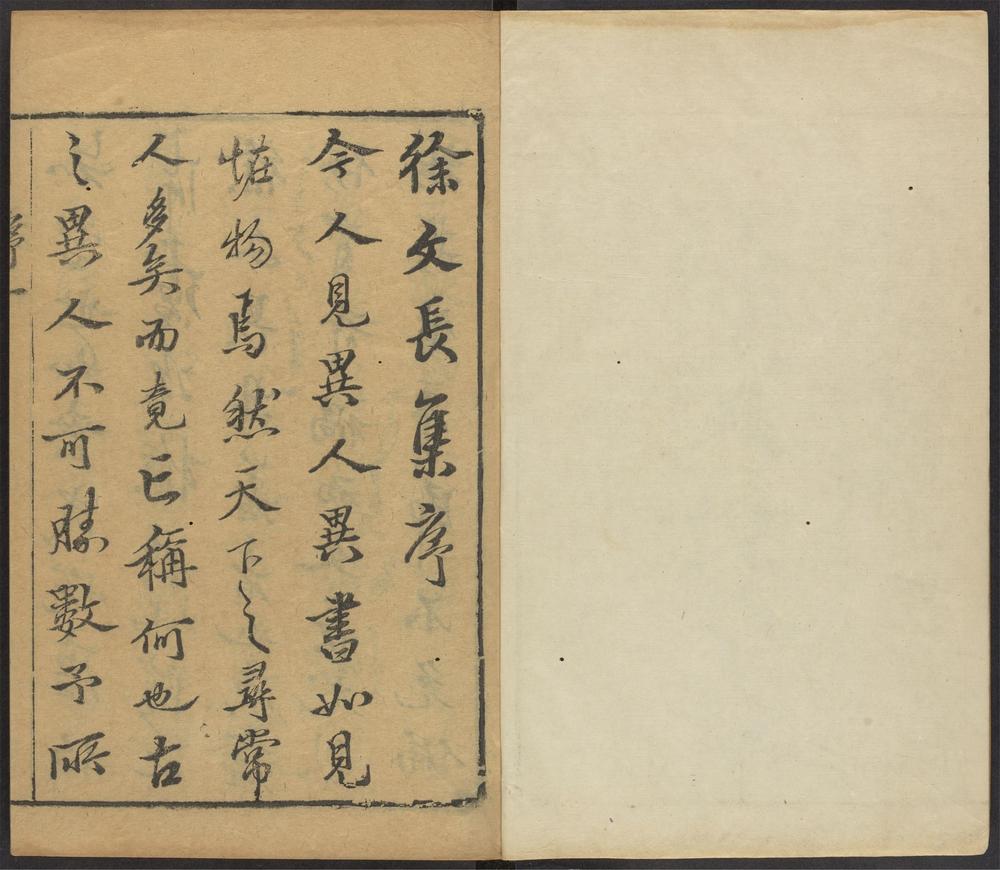 徐文長集序
今人見異人異書如見
恠物焉然天下之尋常
人多矣而竟亡稱何也古
之異人不可勝數予所
序一